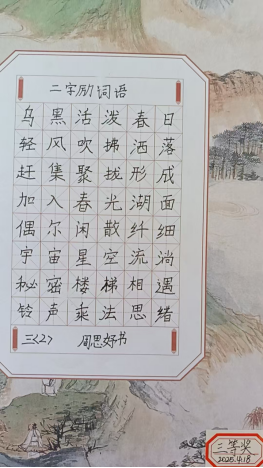 二字励词语
乌黑活泼春日
轻风吹拂洒落
赶集聚拢形成
加入春光湖面
偶尔闲散纤细
宇宙星空流淌
秘密楼梯相遇
铃声乘法思绪
三〈2〉 周思妤书
三等奖
2025.4.18